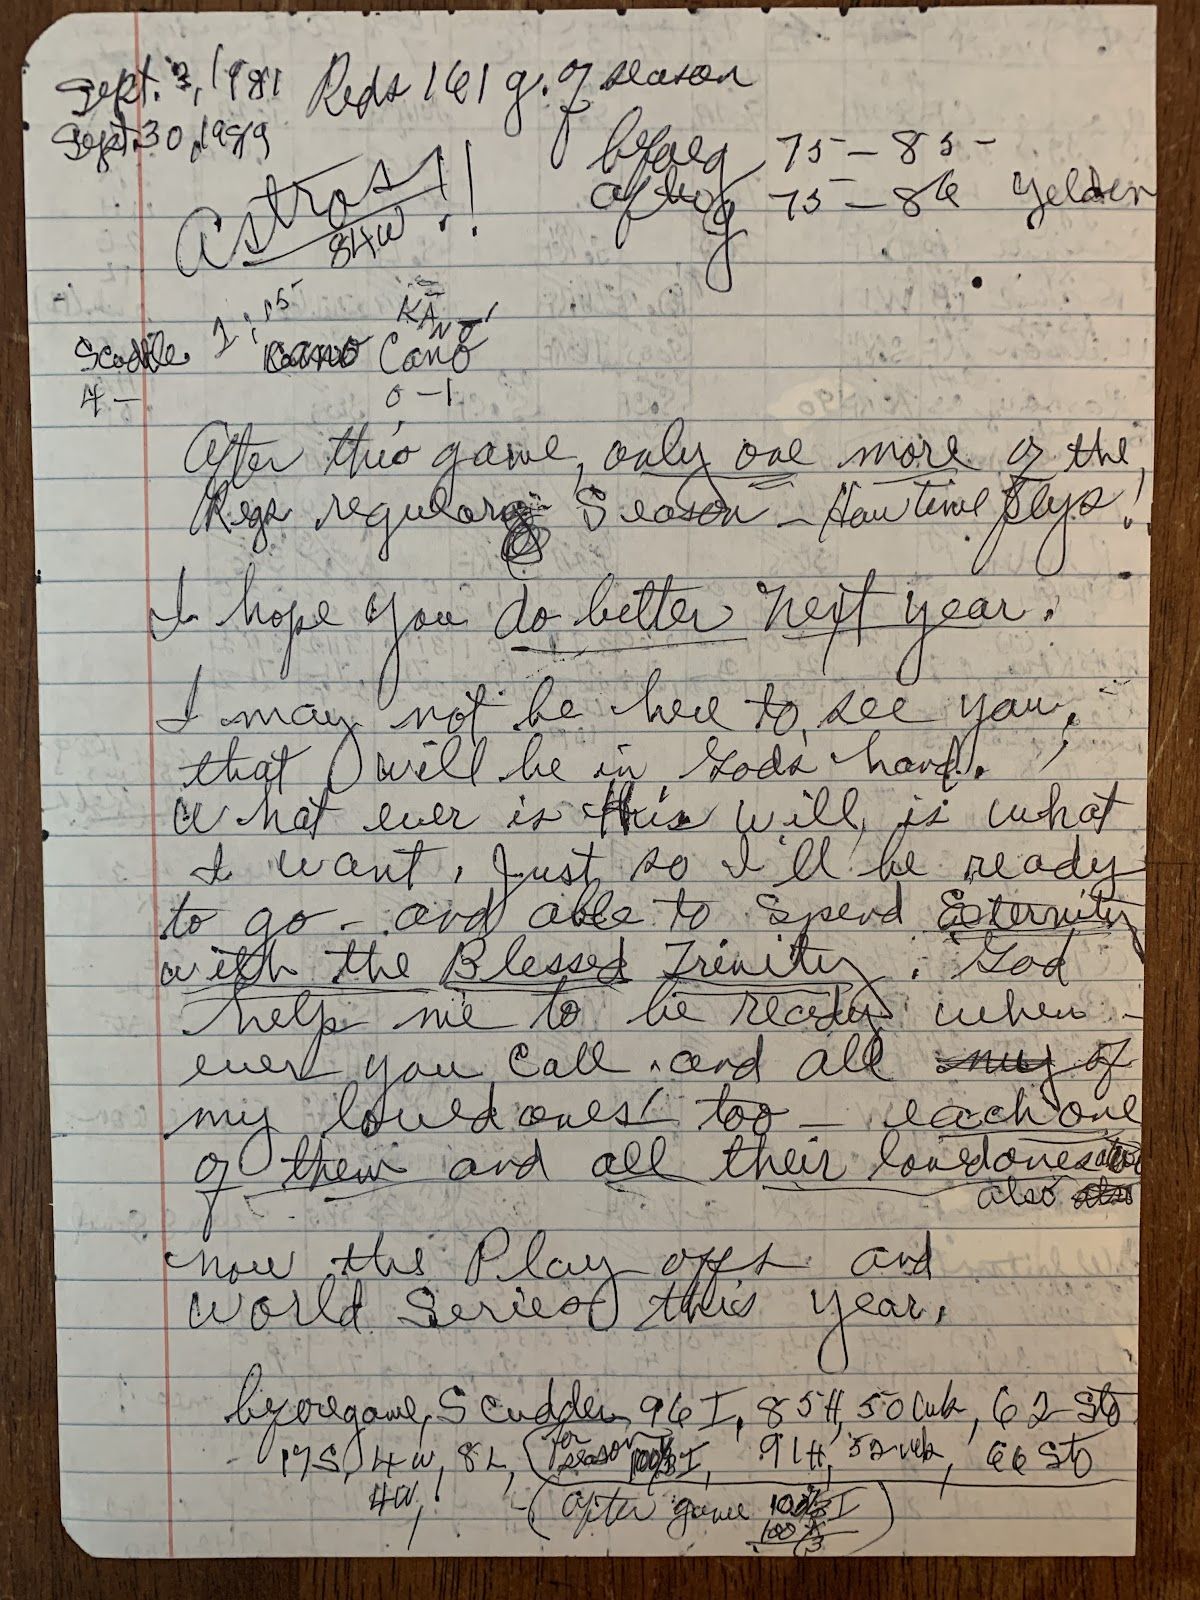 Sept. 3, 1981 Reds 161 g. of season
Sept. 30, 1989
before g 75 - 85 -
after g 75 - 86 Yelden
Astros!!
84W
1:15 KANO
Scudde. Cano Cano
4 - 0 - 1
After this game, only one more of the
Regs regular Season - How time flys!
I hope you do better next year.
I may not be here to see you,
that will be in Gods hand.
What ever is this will, is what
I want. Just so I'll be ready
to go - and able to spend Eternity
with the Blessed Trinity. God
help me to be ready when -
ever you call. and all my of
my loved ones! too - each one
of them and all their loved ones
also also
now the Play offs and
World Series this year.
before game, Scudder, 96 I, 85 H, 50 walk, 62 Sto
17 S, 4 W, 8 L, (for season 100 I, 91 H, 52 walk, 66 Sto
4W, (After game 100 I)
100 1/3